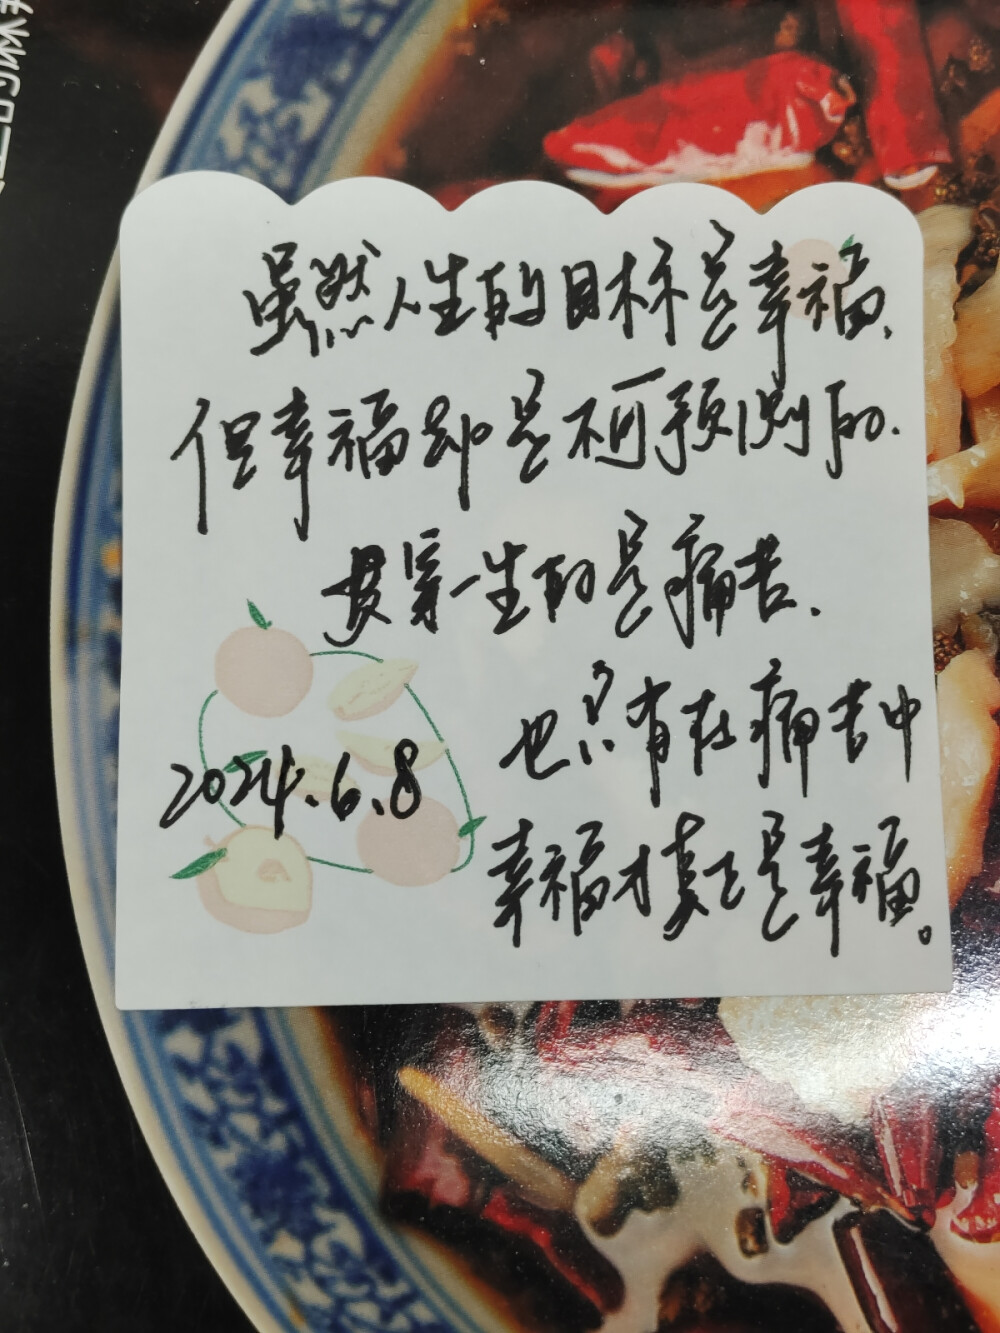 虽然人生的目标是幸福,
但幸福却是不可预测的.
贯穿一生的是痛苦.
也只有在痛苦中
幸福才真正是幸福。
2024.6.8